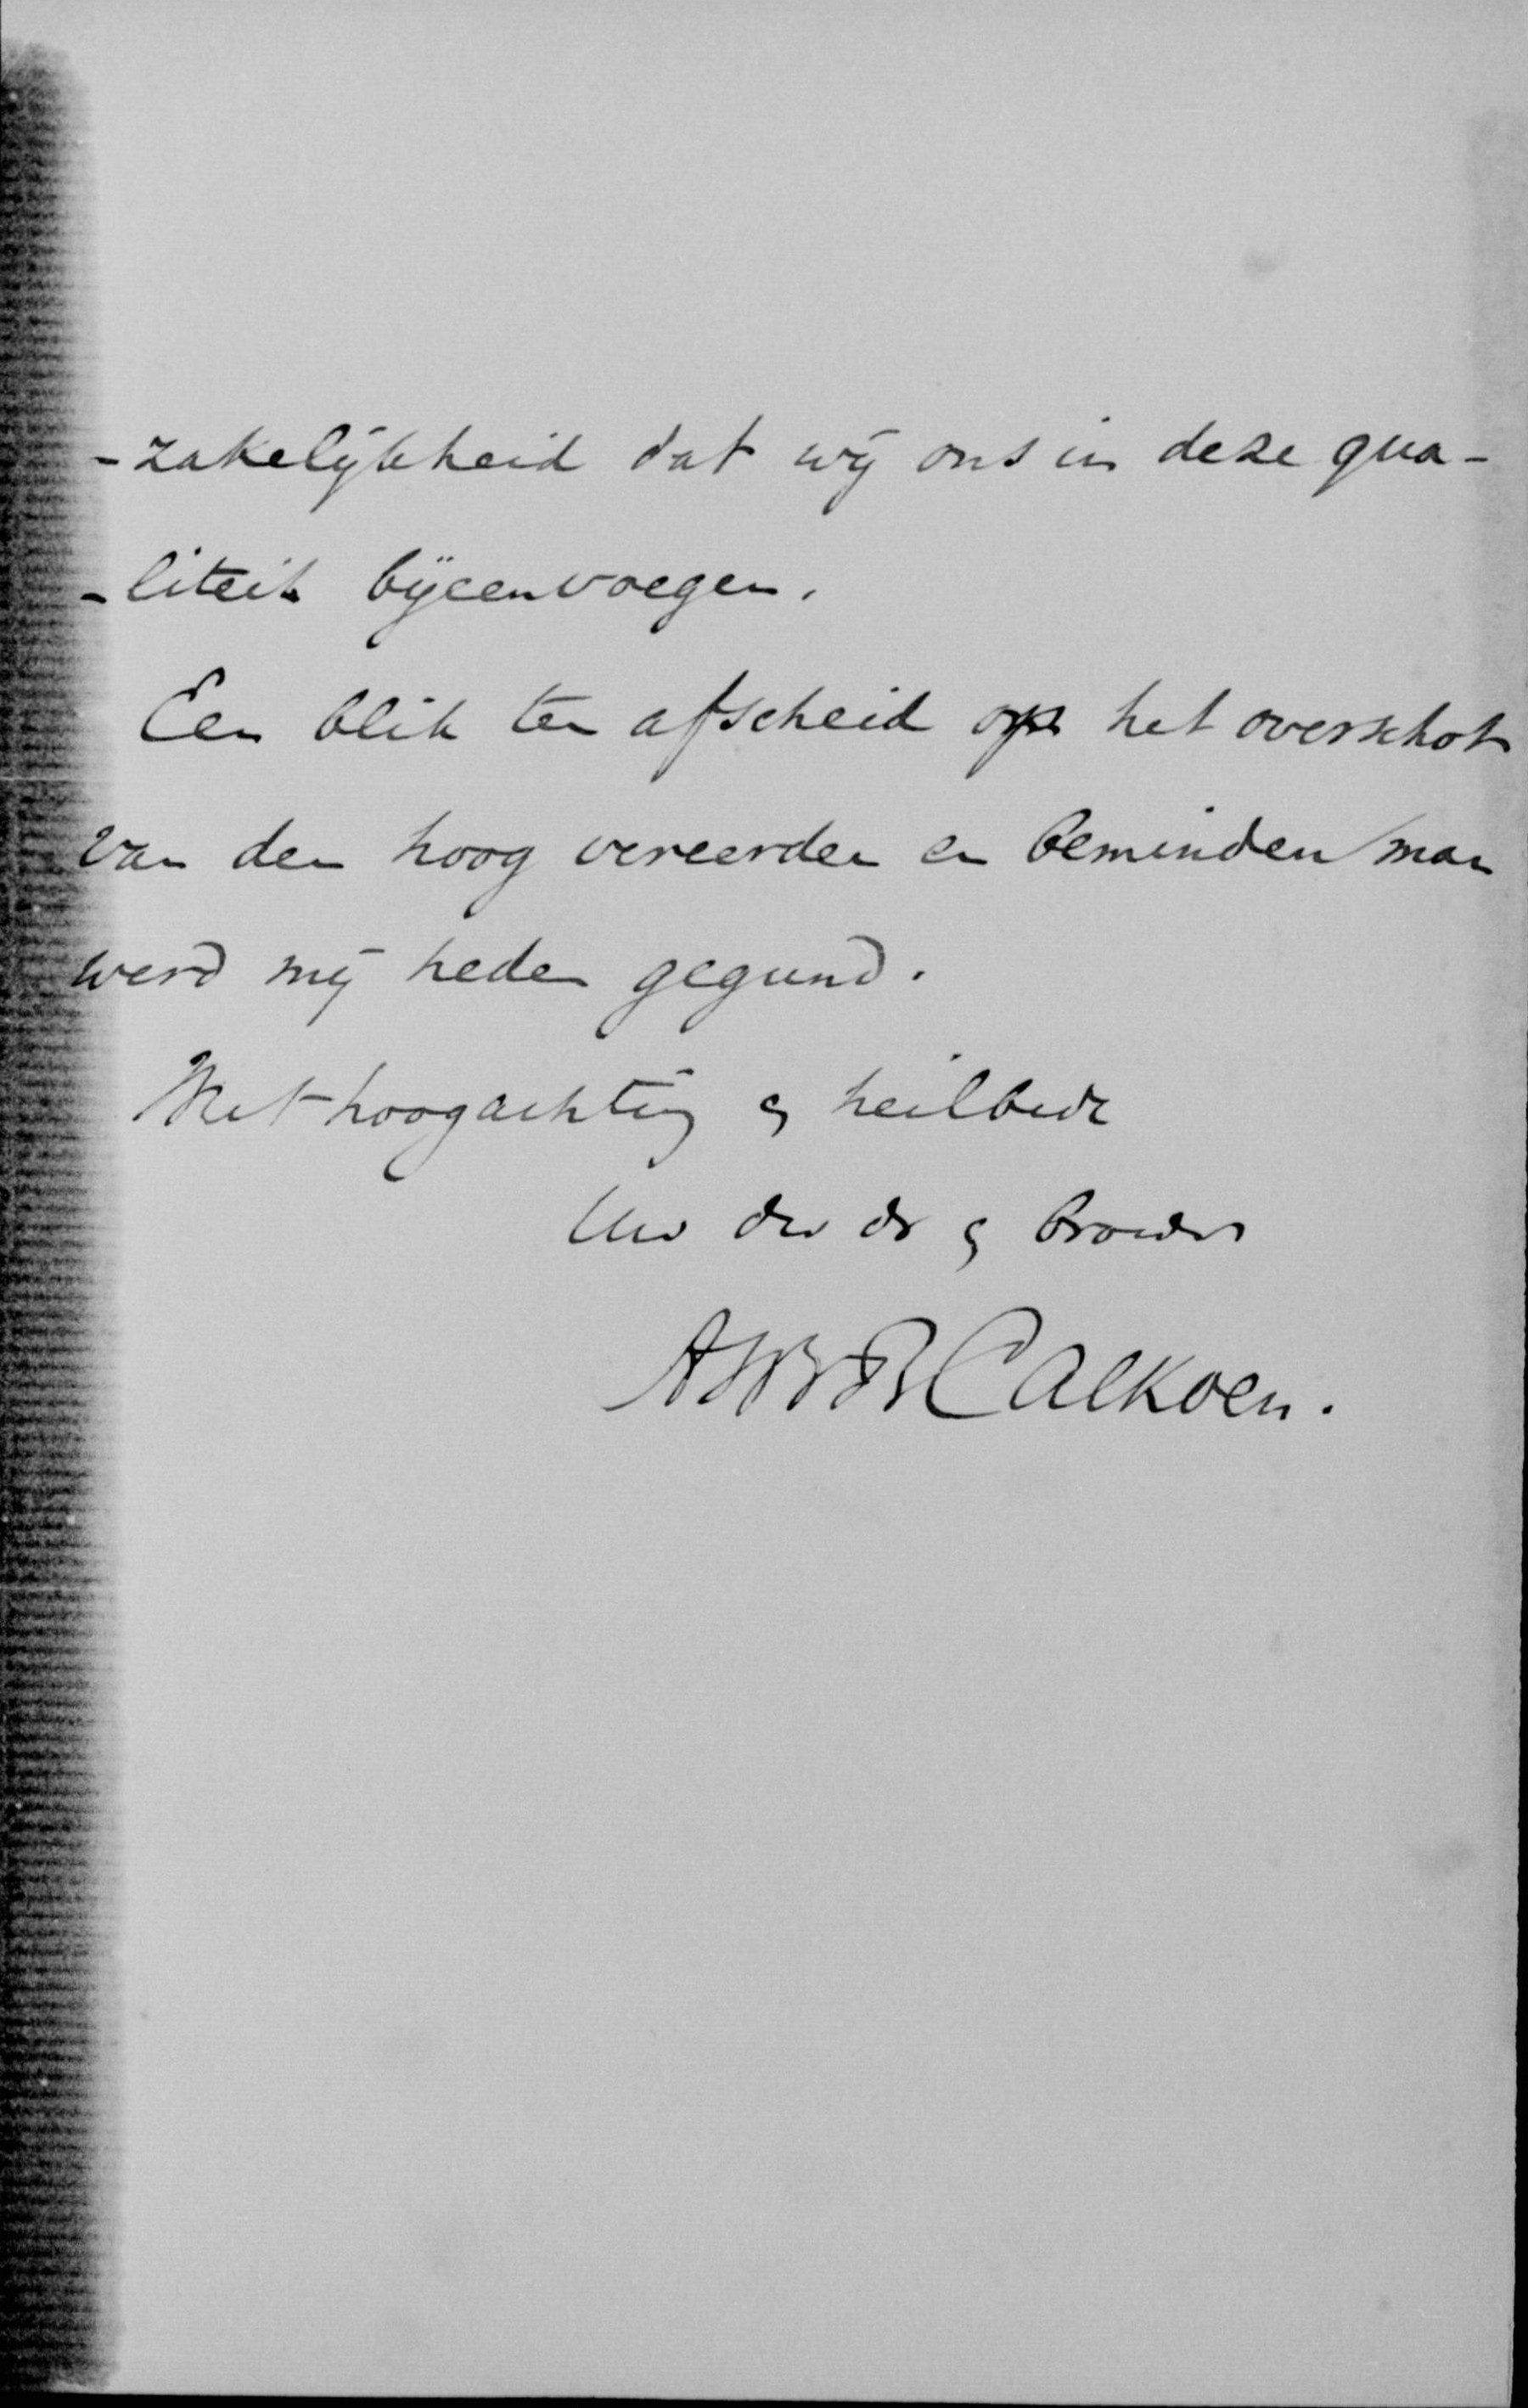 -zakelijkheid dat wij ons in deze qua-
-liteit bijeenvoegen.
Een blik ten afscheid op het overschot
van den hoog vereerden en beminden man
werd mij heden gegund.
Met hoogachting en heilbede
Uw dw dr en broeder
Calkoen.